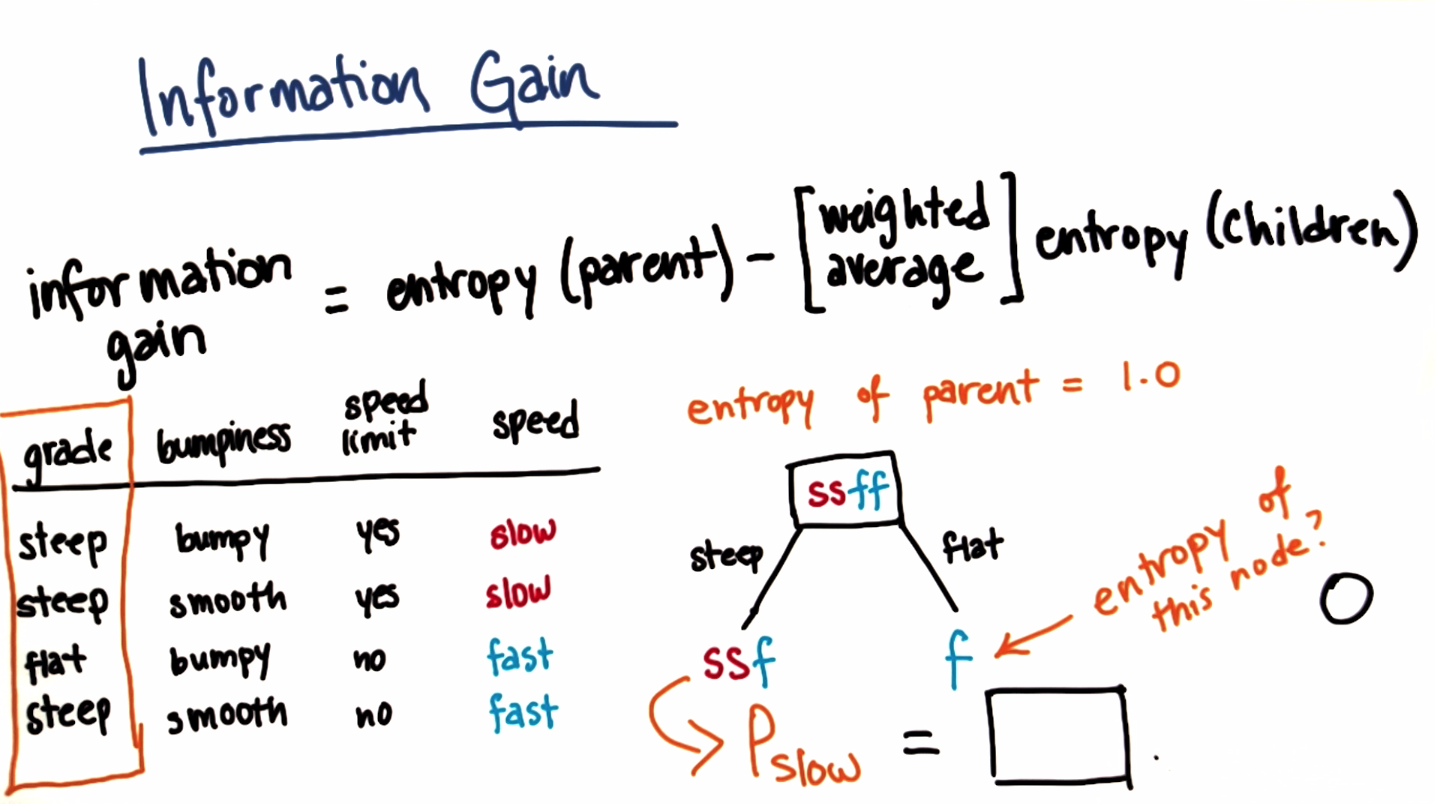 Information Gain
information gain = entropy (parent) - [weighted average] entropy (children)
grade bumpiness speed limit speed
steep bumpy yes slow
steep smooth yes slow
flat bumpy no fast
steep smooth no fast
entropy of parent = 1.0
ssff
steep flat
ssf f
entropy of this node?
0
Pslow =